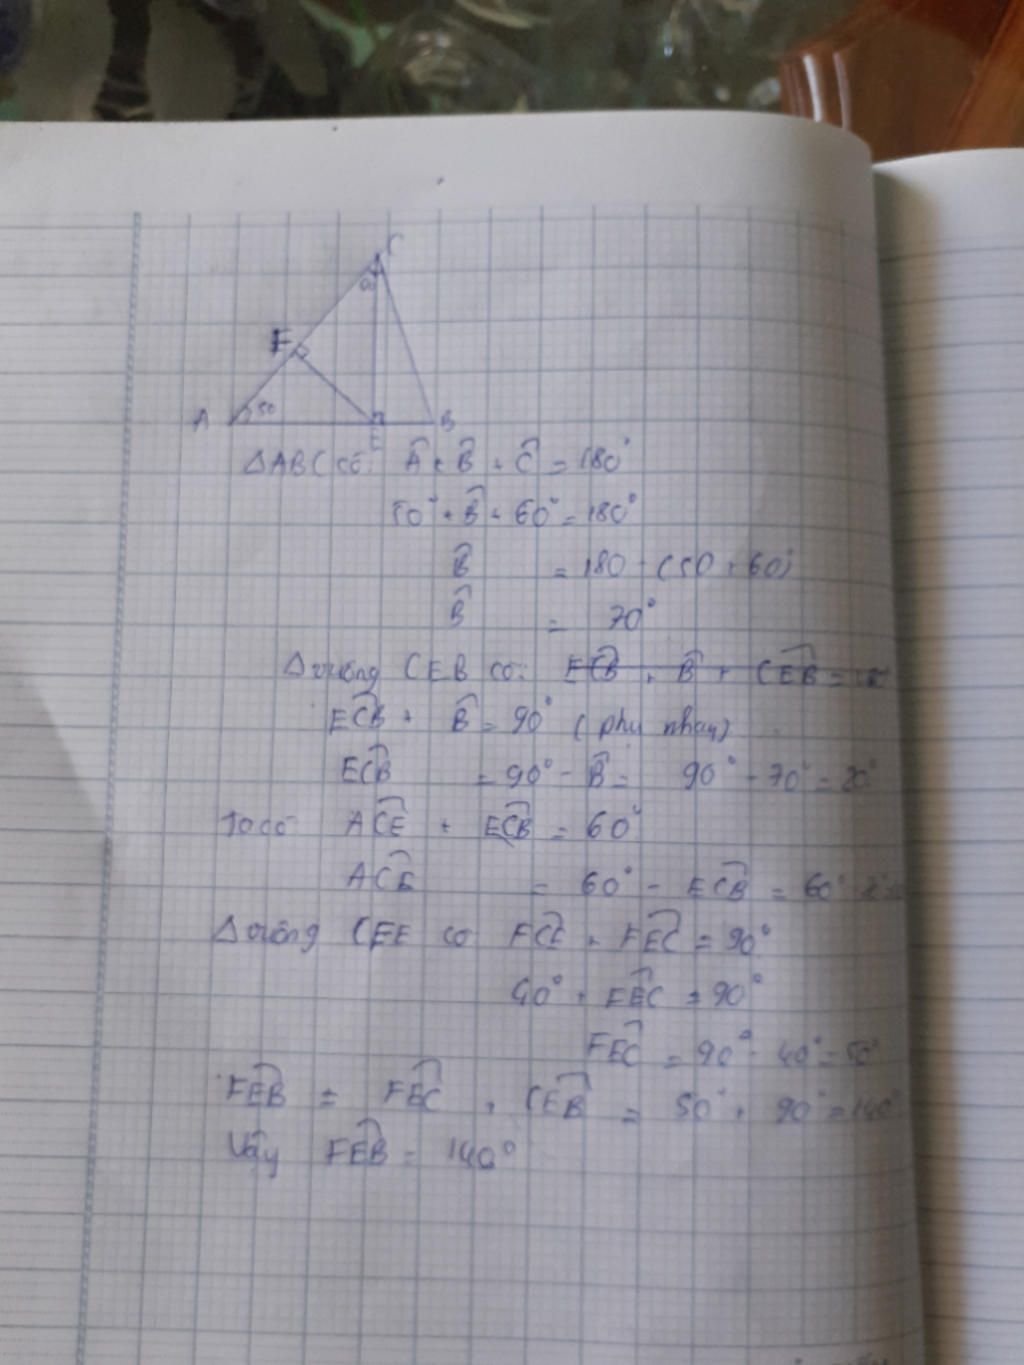 C
F
A 50 B
E
ΔABC có: Â + B̂ + Ĉ = 180°
50° + B̂ + 60° = 180°
B̂ = 180 - (50 + 60)
B̂ = 70°
Δ vuông CEB có: EĈB + B̂ + CÊB =
EĈB + B̂ = 90° (phụ nhau)
EĈB = 90° - B̂ = 90° - 70° = 20°
Ta có AĈE + EĈB = 60°
AĈE = 60° - EĈB = 60°
Δ vuông CEF có FĈE + FÊC = 90°
40° + FÊC = 90°
FÊC = 90° - 40° = 50°
FÊB = FÊC + CÊB = 50° + 90° = 140°
Vậy FÊB = 140°